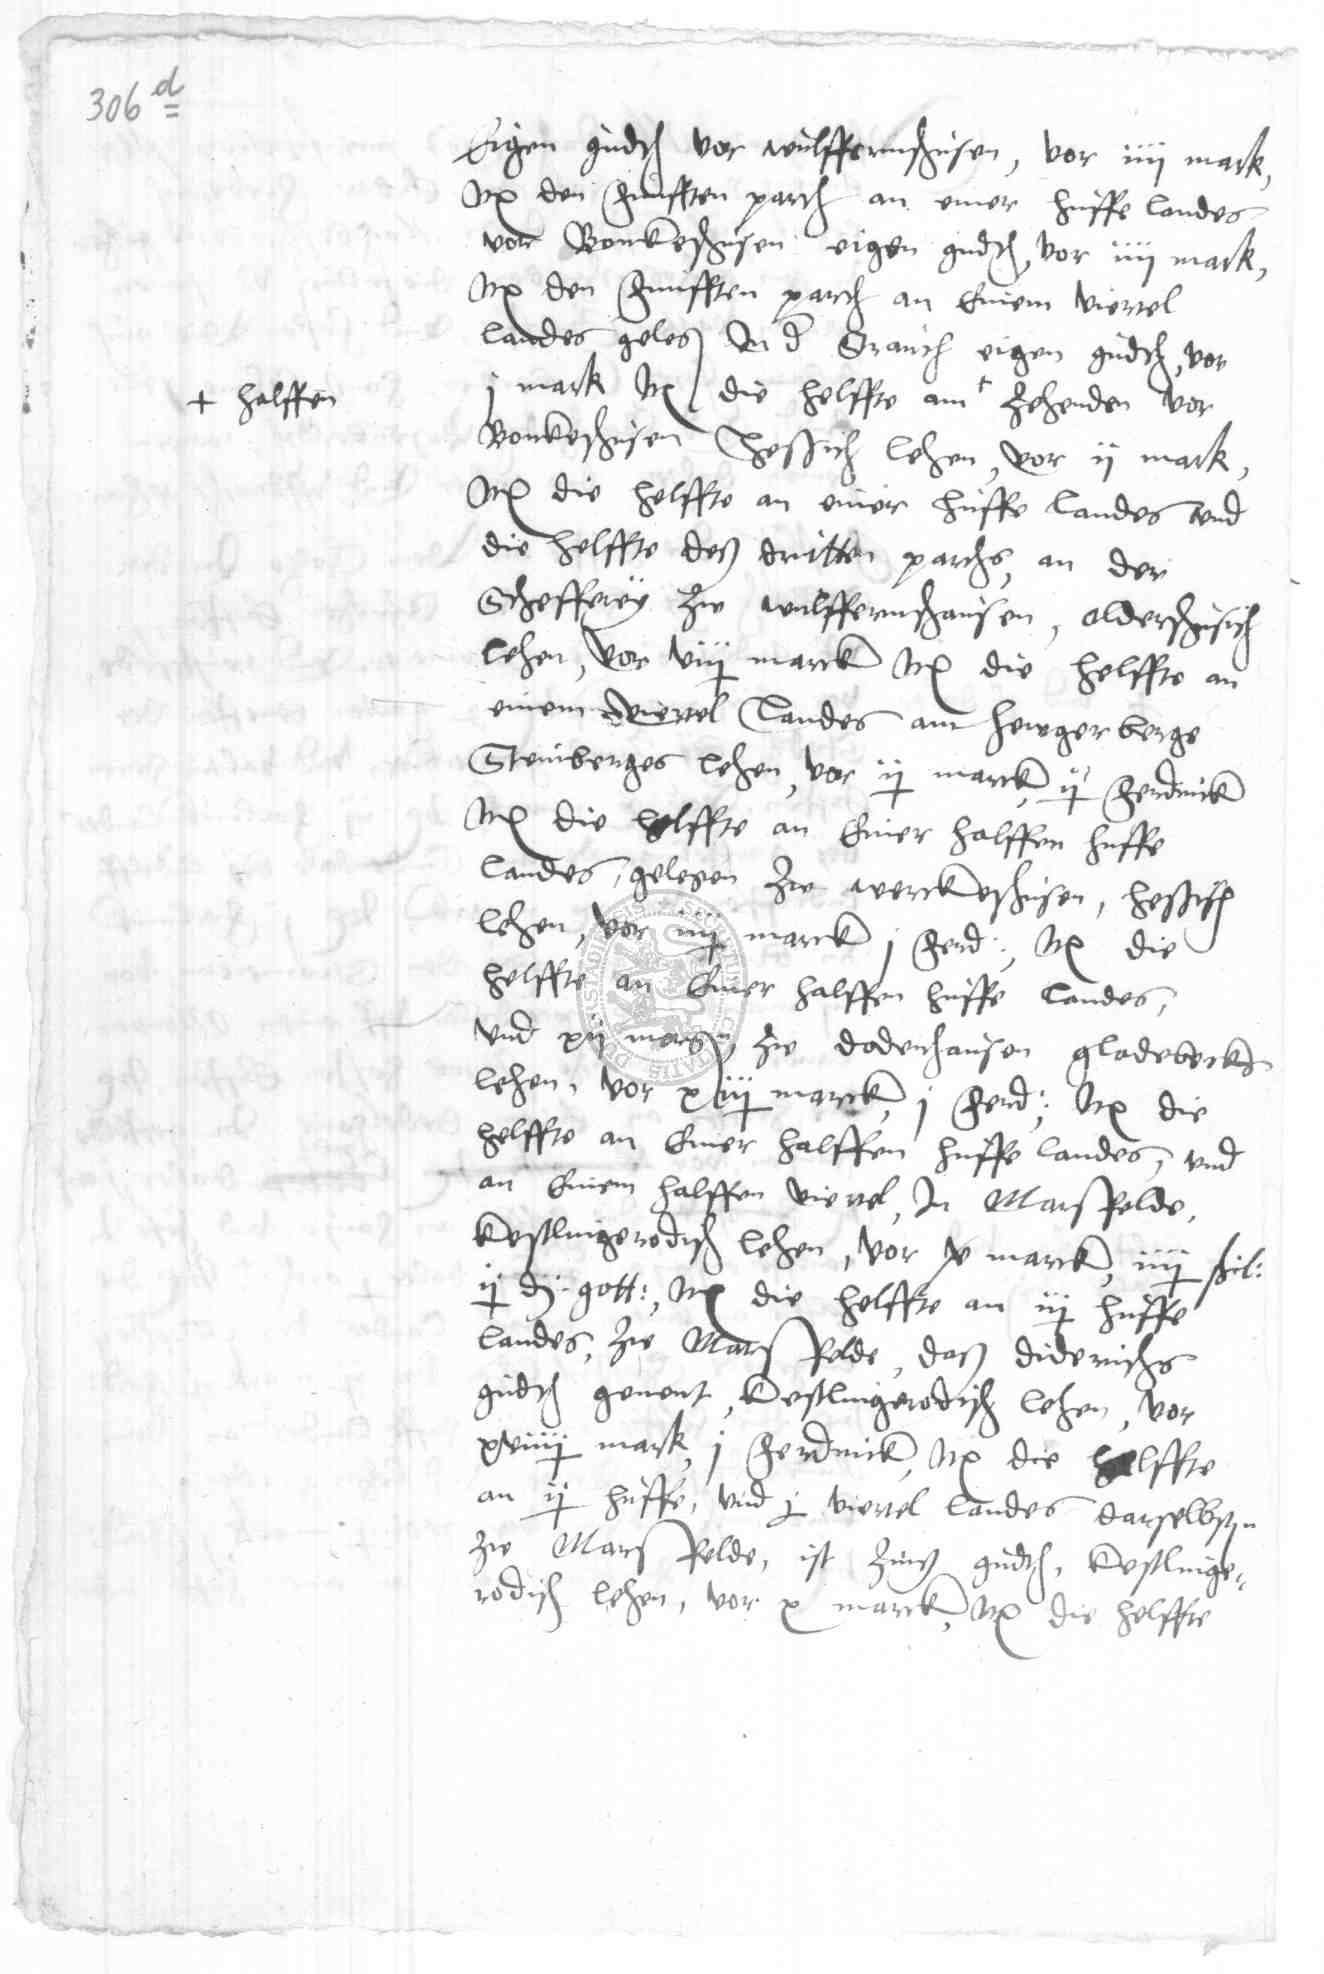 306 d
Eigen gudth vor wulffermshusen, vor iiij mark,
Itẽ den funfften parth an einer huffe landes
vor Bonkeshusen eigen gudth, vor iiij mark,
Itẽ den funfften parth an Einem viertel
landes geleg̃ In d' eigen gudth, vor
+ halffen
j mark Itẽ die helffte am + Zehenden vor
Bonkeshusen Hessisch lehen, vor ij mark,
Itẽ die helffte an einer huffe landes vnd
die helffte deß dritten parths, an der
Schefferey zu wulffermshausen, aldershusisch
lehen, vor viij marck Itẽ die helffte an
einem viertel landes am hengerberge
Steinberges lehen, vor ij marck, ij ferdinck
Itẽ die helffte an Einer halffen huffe
landes, gelegen zu werckeshusen, hessisch
lehen, vor iiij marck j ferd:, Itẽ die
helffte an Einer halffen huffe landes,
vnd xij morg̃, zu dodenhausen gladebecks
lehen, vor xiij marck, j ferd:, Itẽ die
helffte an Einer halffen huffe landes, vnd
an Einem halffen viertel, In Marsfelde,
Kestlingerodisch lehen, vor x marck, iiij ßil:
ij d. gott:, Itẽ die helffte an iij huffe
landes, zu Marsfelde, daß diderichs
gudth genent, Kestlingerodisch lehen, vor
xviiij mark, j ferdinck, Itẽ die helffte
an ij huffe, vnd j viertel landes darselbst
zu Marsfelde, ist Zinß gudth, Kestlinge-
rodisch lehen, vor x marck, Itẽ die helffte